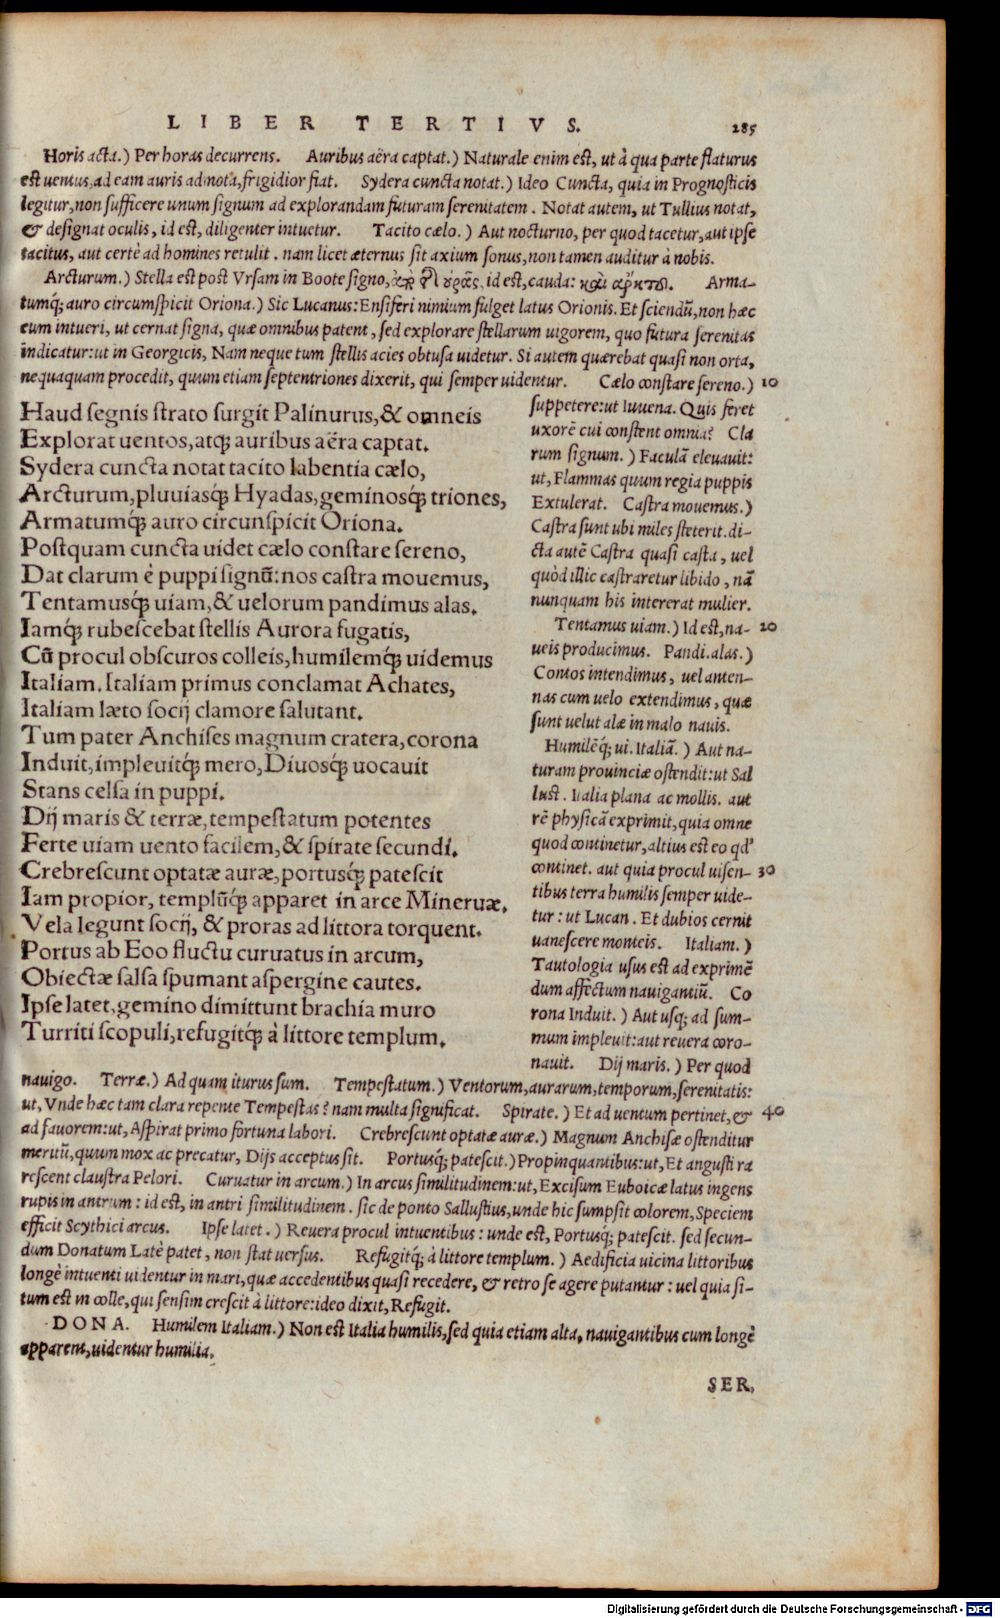 LIBER TERTIVS. 285
Horis acta.) Per horas decurrens. Auribus aëra captat.) Naturale enim est, ut à qua parte flaturus
est uentus, ad eam auris admota, frigidior fiat. Sydera cuncta notat.) Ideo Cuncta, quia in Prognosticis
legitur, non sufficere unum signum ad explorandam futuram serenitatem. Notat autem, ut Tullius notat,
& designat oculis, id est, diligenter intuetur. Tacito cælo.) Aut nocturno, per quod tacetur, aut ipse
tacitus, aut certè ad homines retulit. nam licet æternus sit axium sonus, non tamen auditur à nobis.
Arcturum.) Stella est post Vrsam in Boote signo, οὐρᾶς, id est, cauda: καὶ ἄρκτου. Arma-
tumq́; auro circumspicit Oriona.) Sic Lucanus: Ensiferi nimium fulget latus Orionis. Et sciendũ, non hæc
eum intueri, ut cernat signa, quæ omnibus patent, sed explorare stellarum uigorem, quo futura serenitas
indicatur: ut in Georgicis, Nam neque tum stellis acies obtusa uidetur. Si autem quærebat quasi non orta,
nequaquam procedit, quum etiam septentriones dixerit, qui semper uidentur. Cælo constare sereno.) 10
Haud segnis strato surgit Palinurus, & omneis
Explorat uentos, atq́; auribus aëra captat.
Sydera cuncta notat tacito labentia cælo,
Arcturum, pluuiasq́; Hyadas, geminosq́; triones,
Armatumq́; auro circunspicit Oriona.
Postquam cuncta uidet cælo constare sereno,
Dat clarum è puppi signũ: nos castra mouemus,
Tentamusq́; uiam, & uelorum pandimus alas.
Iamq́; rubescebat stellis Aurora fugatis,
Cũ procul obscuros colleis, humilemq́; uidemus
Italiam. Italiam primus conclamat Achates,
Italiam læto socij clamore salutant.
Tum pater Anchises magnum cratera, corona
Induit, impleuitq́; mero, Diuosq́; uocauit
Stans celsa in puppi.
Dij maris & terræ, tempestatum potentes
Ferte uiam uento facilem, & spirate secundi.
Crebrescunt optatæ auræ, portusq́; patescit
Iam propior, templũq́; apparet in arce Mineruæ.
Vela legunt socij, & proras ad littora torquent.
Portus ab Eoo fluctu curuatus in arcum,
Obiectæ salsa spumant aspergine cautes.
Ipse latet, gemino dimittunt brachia muro
Turriti scopuli, refugitq́; à littore templum.
suppetere: ut Iuuena. Quis feret
uxorẽ cui constent omnia? Cla
rum signum.) Faculã eleuauit:
ut, Flammas quum regia puppis
Extulerat. Castra mouemus.)
Castra sunt ubi miles steterit. di-
cta autẽ Castra quasi casta, uel
quòd illic castraretur libido, nã
nunquam his intererat mulier.
Tentamus uiam.) Id est, na- 20
ueis producimus. Pandi. alas.)
Contos intendimus, uel anten-
nas cum uelo extendimus, quæ
sunt uelut alæ in malo nauis.
Humilẽq́; ui. Italiã.) Aut na-
turam prouinciæ ostendit: ut Sal
lust. Italia plana ac mollis. aut
rẽ physicã exprimit, quia omne
quod continetur, altius est eo qd'
continet. aut quia procul uisen- 30
tibus terra humilis semper uide-
tur: ut Lucan. Et dubios cernit
uanescere monteis. Italiam.)
Tautologia usus est ad exprimẽ
dum affectum nauigantiũ. Co
rona Induit.) Aut usq; ad sum-
mum impleuit: aut reuera coro-
nauit. Dij maris.) Per quod
nauigo. Terræ.) Ad quam iturus sum. Tempestatum.) Ventorum, aurarum, temporum, serenitatis:
ut, Vnde hæc tam clara repente Tempestas? nam multa significat. Spirate.) Et ad uentum pertinet, & 40
ad fauorem: ut, Aspirat primo fortuna labori. Crebrescunt optatæ auræ.) Magnum Anchisæ ostenditur
meritũ, quum mox ac precatur, Dijs acceptus sit. Portusq́; patescit.) Propinquantibus: ut, Et angusti ra
rescent claustra Pelori. Curuatur in arcum.) In arcus similitudinem: ut, Excisum Euboicæ latus ingens
rupis in antrum: id est, in antri similitudinem. sic de ponto Sallustius, unde hic sumpsit colorem, Speciem
efficit Scythici arcus. Ipse latet.) Reuera procul intuentibus: unde est, Portusq́; patescit. sed secun-
dum Donatum Latè patet, non stat uersus. Refugitq́; à littore templum.) Aedificia uicina littoribus
longè intuenti uidentur in mari, quæ accedentibus quasi recedere, & retro se agere putantur: uel quia si-
tum est in colle, qui sensim crescit à littore: ideo dixit, Refugit.
DONA. Humilem Italiam.) Non est Italia humilis, sed quia etiam alta, nauigantibus cum longè
apparent, uidentur humilia.
SER.
Digitalisierung gefördert durch die Deutsche Forschungsgemeinschaft - DFG